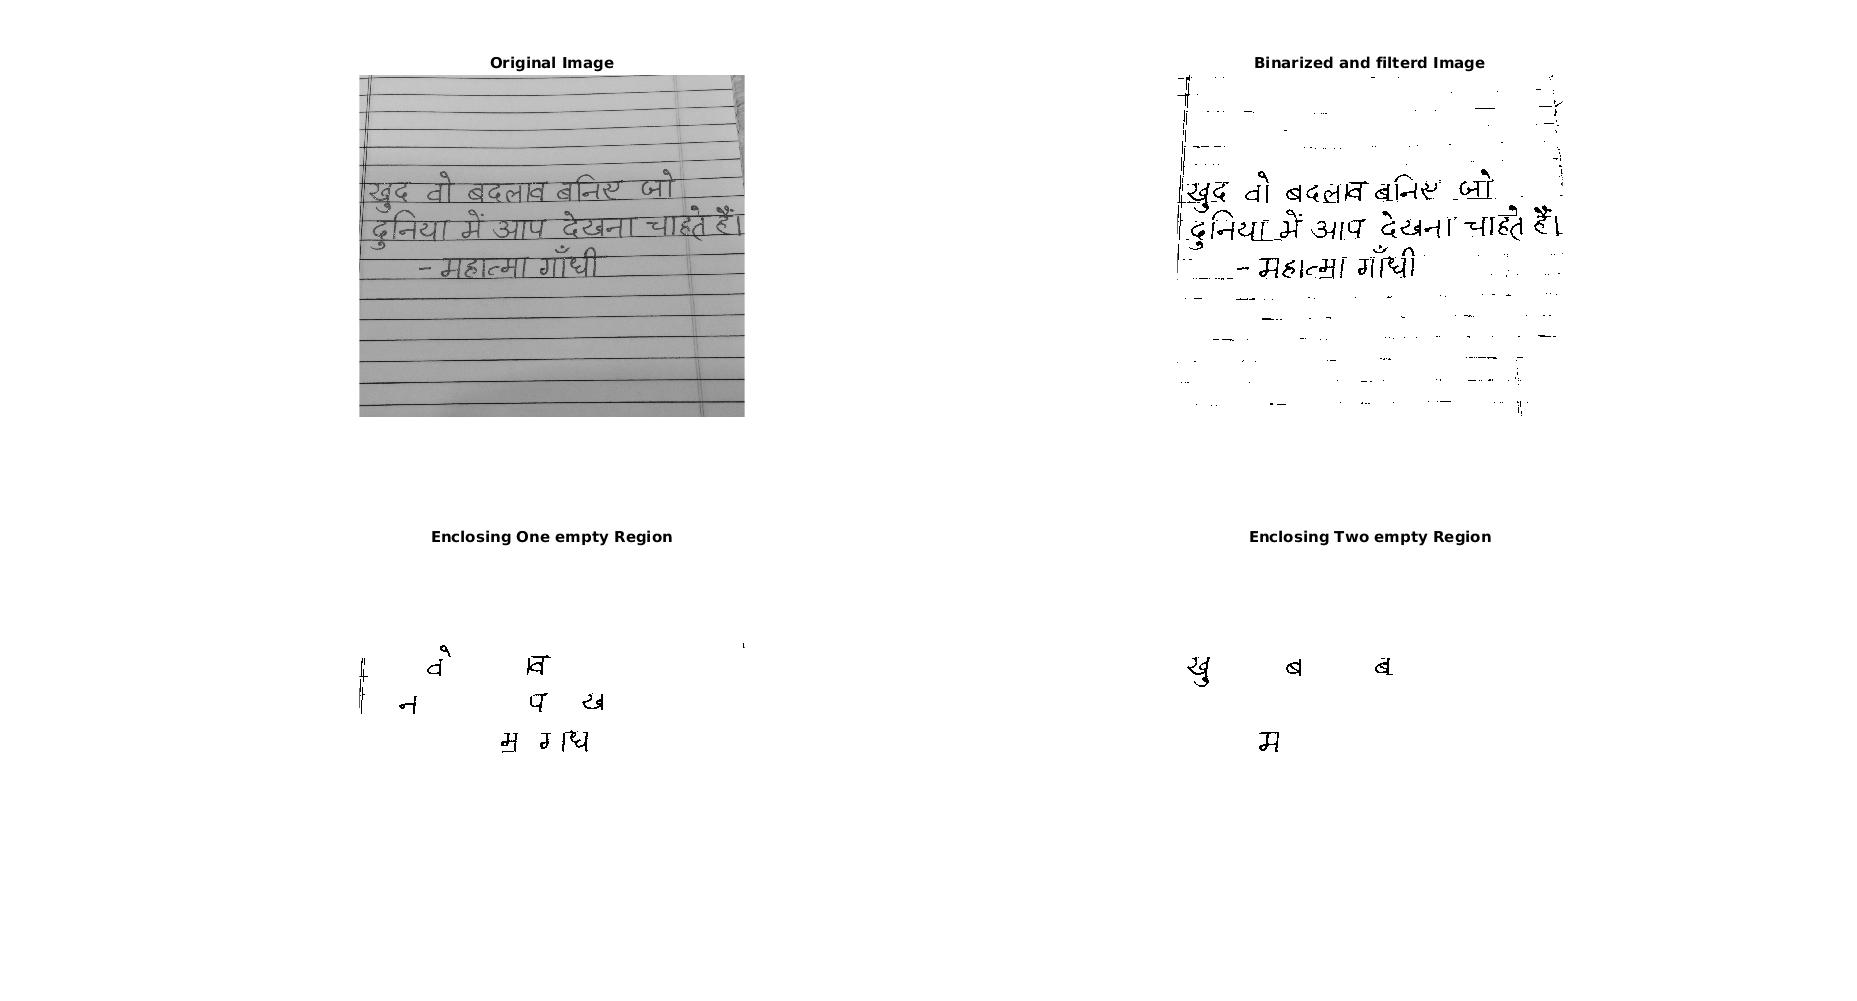 Original Image
खुद वो बदलाव बनिए जो
दुनिया में आप देखना चाहते हैं।
- महात्मा गाँधी
Binarized and filterd Image
खुद वो बदलाव बनिए जो
दुनिया में आप देखना चाहते हैं।
- महात्मा गाँधी
Enclosing One empty Region
वे व
न प ख
म ग ध
Enclosing Two empty Region
खु ब ब
म